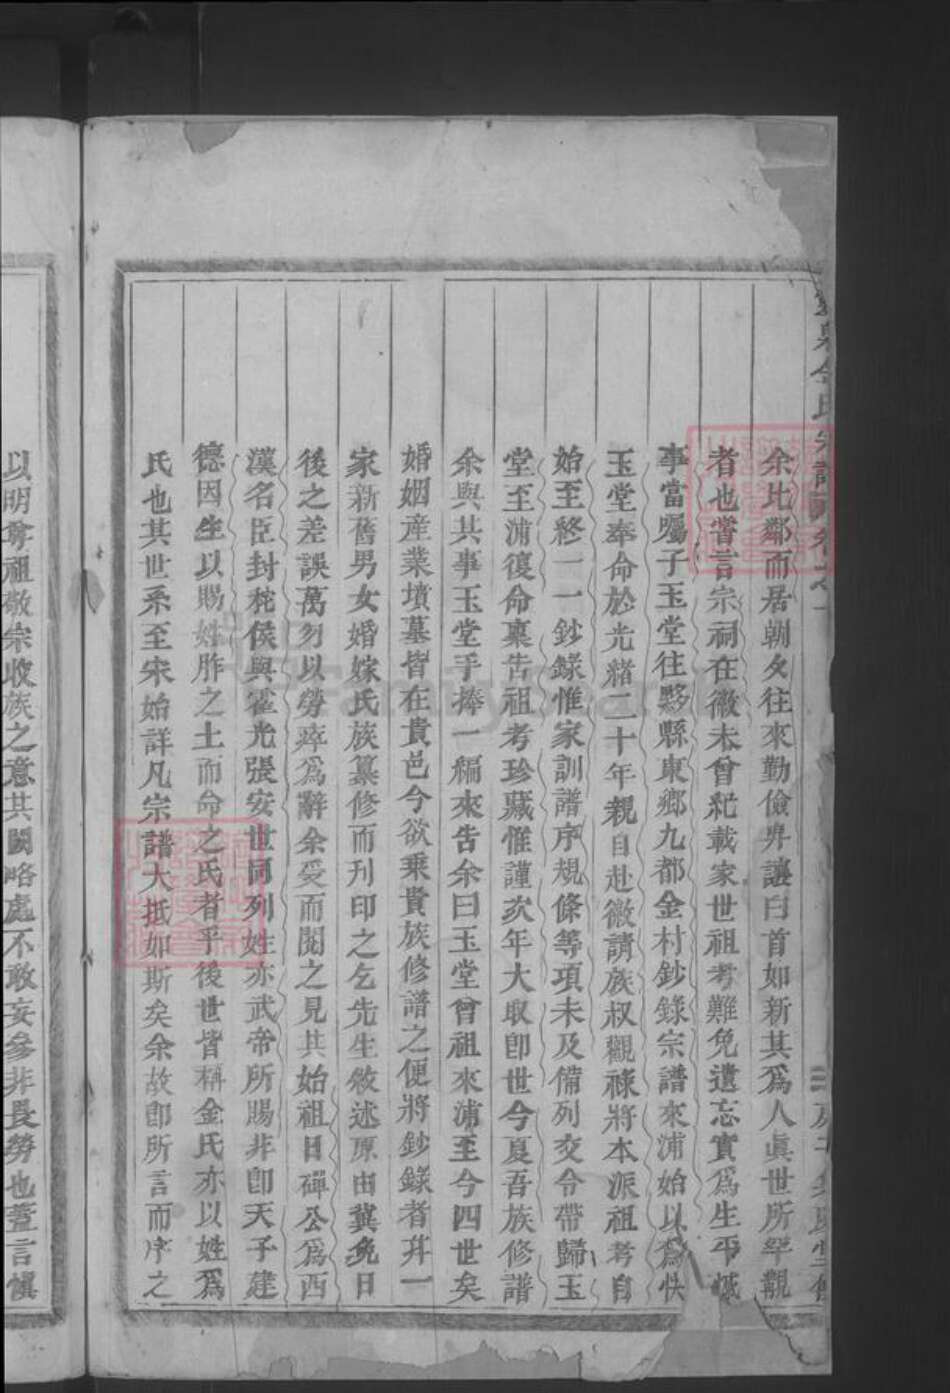 余比鄰而居朝夕往來勤儉畀讓白首如新其爲人眞世所罕覯
者也嘗言宗祠在徽未曾紀載家世祖考難免遺忘實爲生平憾
事當囑子玉堂往黟縣東鄉九都金村鈔錄宗譜來浦始以爲快
玉堂奉命於光緒二十年親自赴徽請族叔觀祿將本派祖考自
始至終一一鈔錄惟家訓譜序規條等項未及備列交令帶歸玉
堂至浦復命稟告祖考珍藏惟謹次年大取卽世今夏吾族修譜
余與其事玉堂手捧一編來告余曰玉堂曾祖來浦至今四世矣
婚姻產業墳墓皆在貴邑今欲乘貴族修譜之便將鈔錄者幷一
家新舊男女婚嫁氏族纂修而刊印之乞先生敘述原由冀免日
後之差誤萬勿以勞瘁爲辭余受而閱之見其始祖日磾公爲西
漢名臣封秺侯與霍光張安世同列姓亦武帝所賜非卽天子建
德因生以賜姓胙之土而命之氏者乎後世皆稱金氏亦以姓爲
氏也其世系至宋始詳凡宗譜大抵如斯矣余故卽所言而序之
以明尊祖敬宗收族之意其闕略處不敢妄參非畏勞也蓋言愼